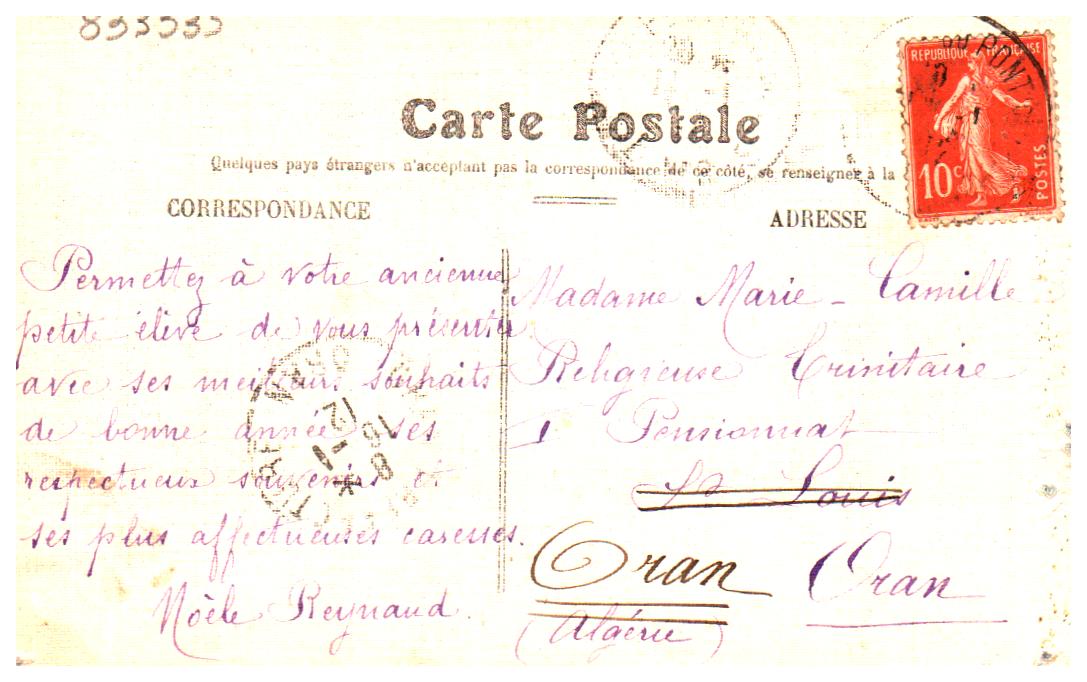 Carte Postale
Quelques pays étrangers n'acceptant pas la correspondance de ce côté, se renseigner à la
CORRESPONDANCE
ADRESSE
REPUBLIQUE FRANÇAISE
10c
POSTES
DU PONT
Permettez à votre ancienne
petite élève de vous présenter
avec ses meilleurs souhaits
de bonne année ses
respectueux souvenirs et
ses plus affectueuses caresses.
Noële Reynaud.
Madame Marie-Camille
Religieuse Trinitaire
Pensionnat
St Louis
Oran
Oran
(Algérie)